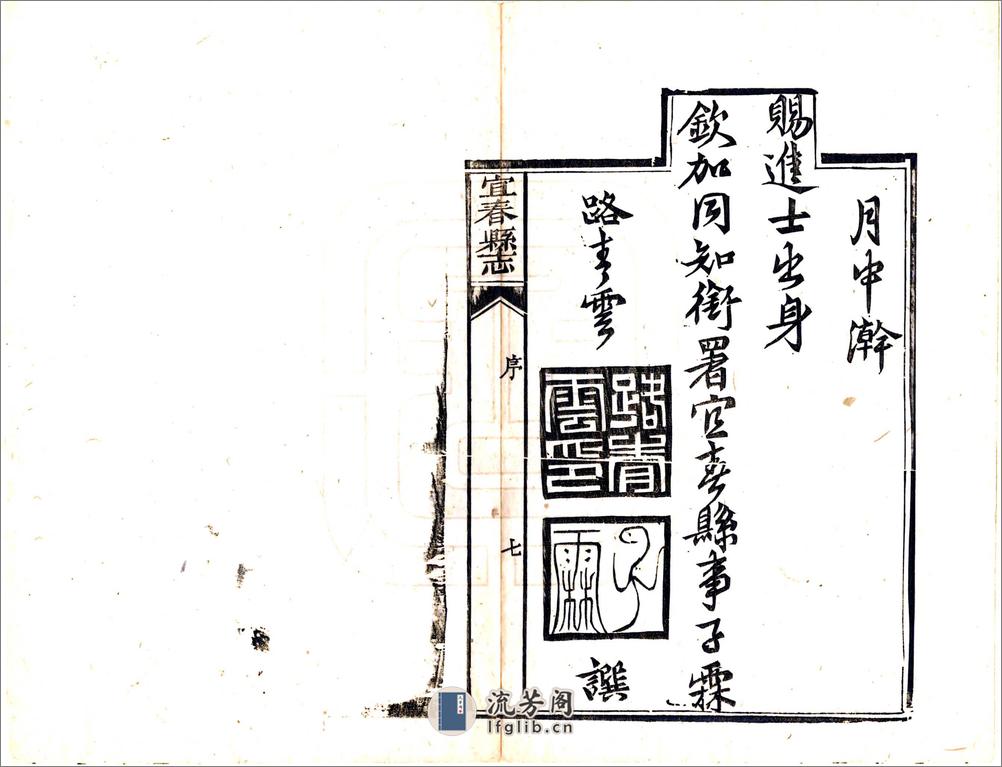 月中澣
賜進士出身
欽加同知銜署宜春縣事子霖
路青雲
路青雲印
子霖
譔
宜春縣志
序
七
流芳阁
lfglib.cn